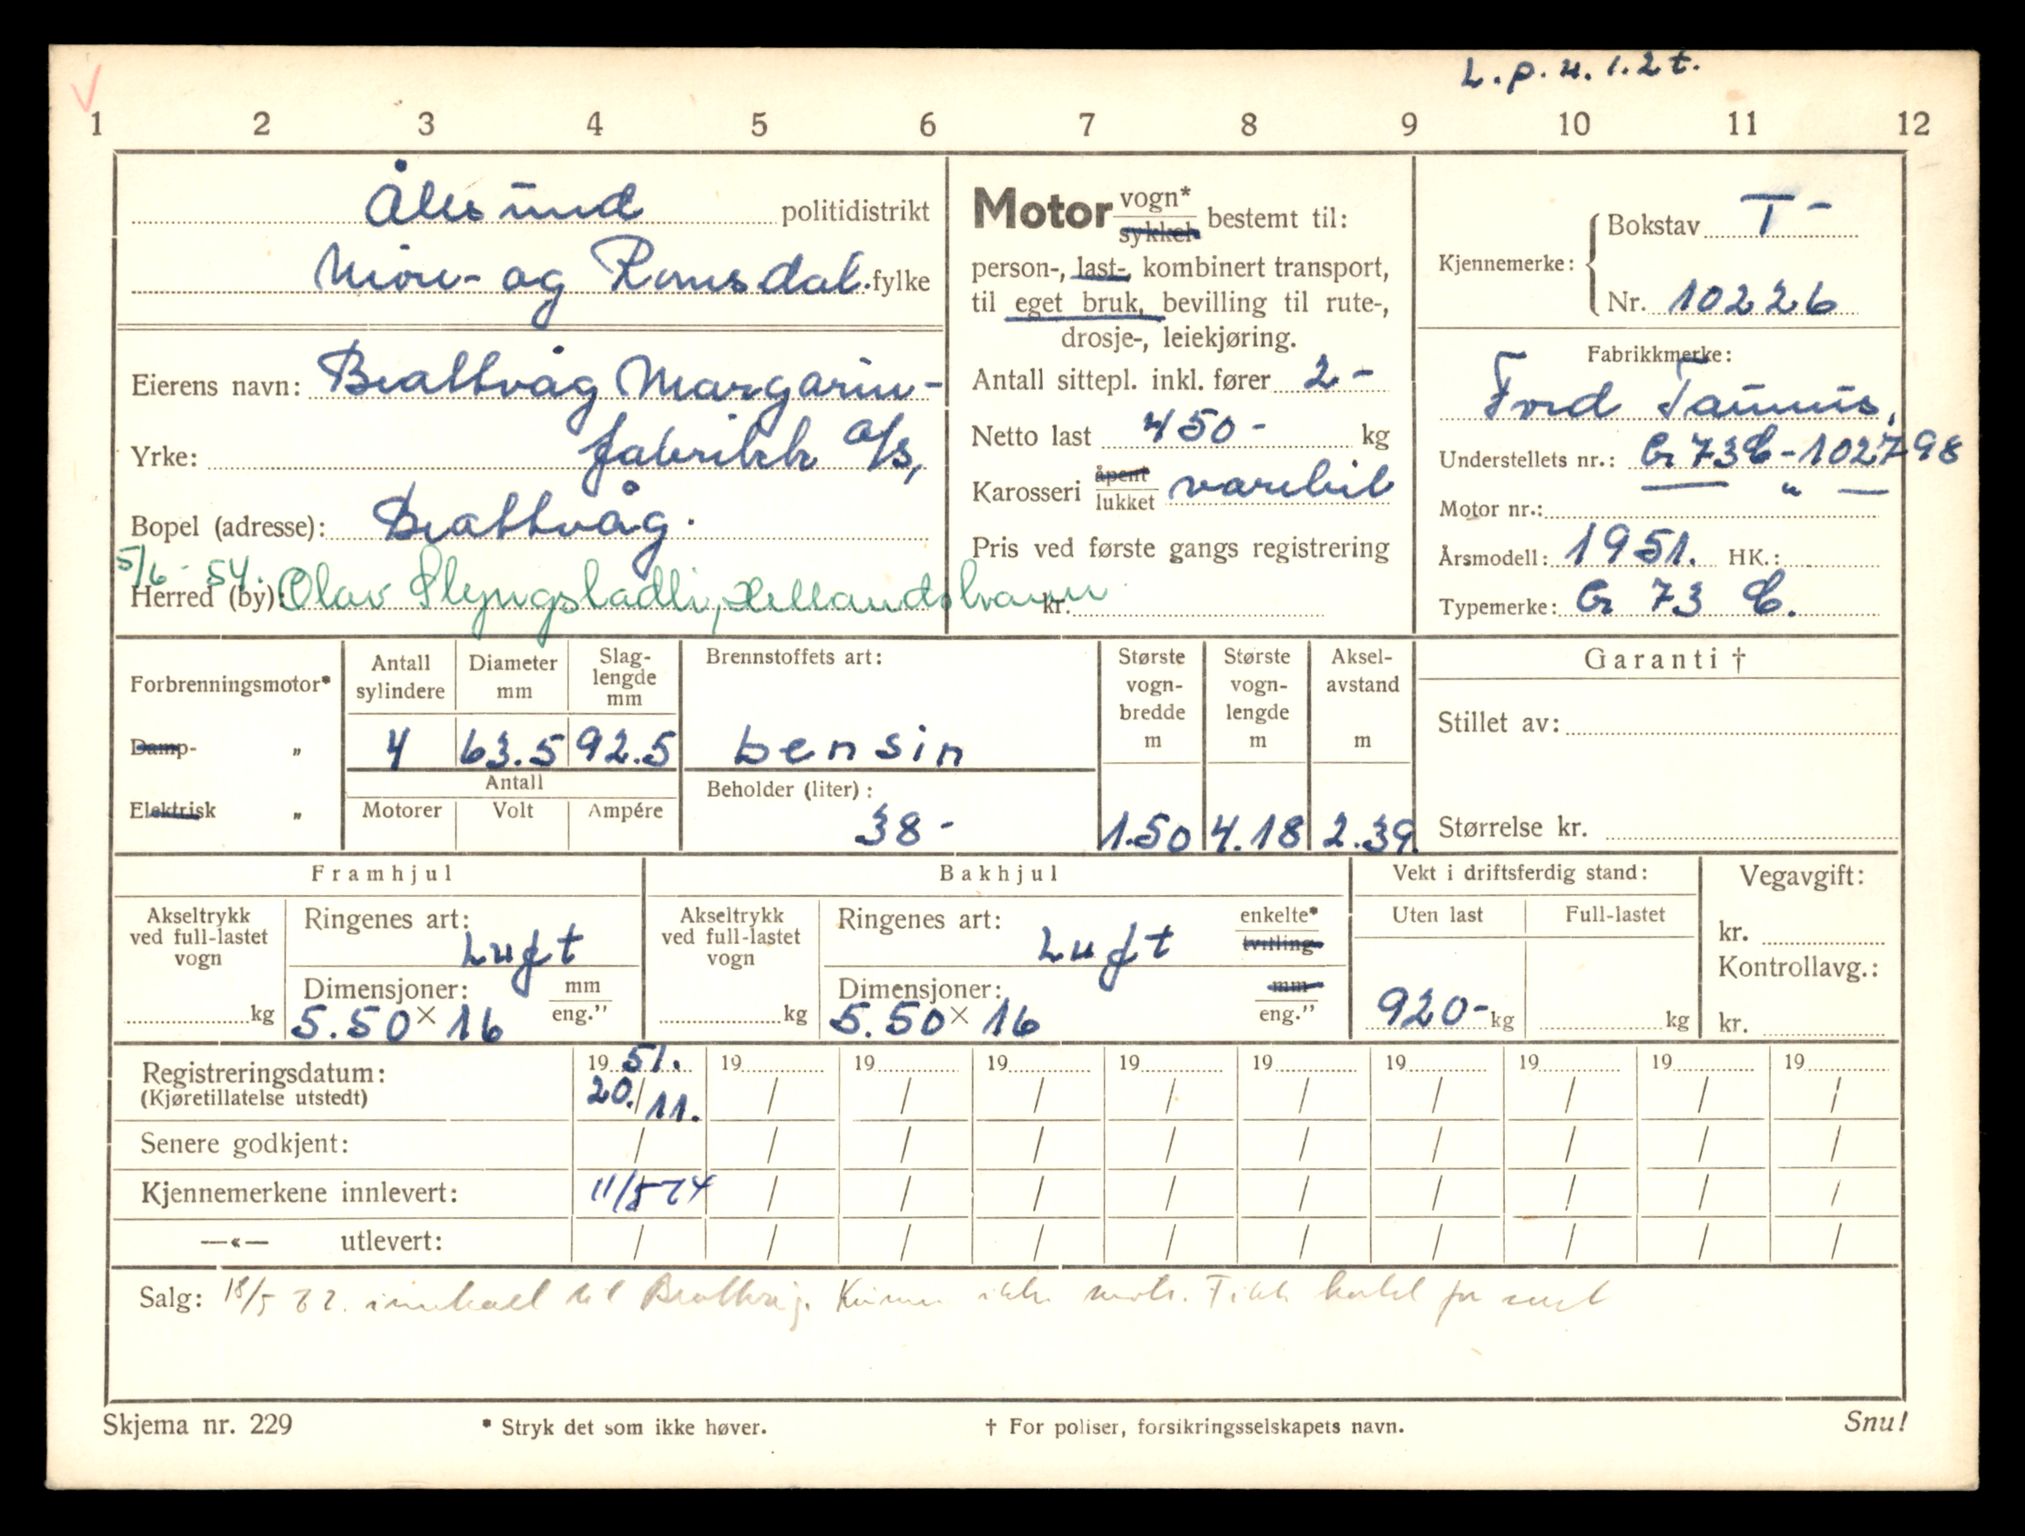 L.p.u.1.2t.
1 2 3 4 5 6 7 8 9 10 11 12
Ålesund politidistrikt
Møre- og Romsdal fylke
Eierens navn: Brattvåg Margarin-
Yrke: fabrikk A/S,
Bopel (adresse): Brattvåg.
5/6-54.
Herred (by): Olav Slyngstadli,
Motor vogn*
sykkel bestemt til:
person-, last-, kombinert transport,
til eget bruk, bevilling til rute-,
drosje-, leiekjøring.
Antall sittepl. inkl. fører 2-
Netto last 450- kg
Karosseri åpent
lukket varebil
Pris ved første gangs registrering
kr.
Kjennemerke:
Bokstav T-
Nr. 10226
Fabrikkmerke:
Ford Taunus.
Understellets nr.: G 73 C - 102798
Motor nr.: — " —
Årsmodell: 1951. HK.:
Typemerke: G 73 C.
Forbrenningsmotor*
Damp- „
Elektrisk „
Antall sylindere
4
Diameter mm
63.5
Slag-
lengde
mm
92.5
Antall
Motorer Volt Ampére
Brennstoffets art:
bensin
Beholder (liter):
38-
Største
vogn-
bredde
m
1.50
Største
vogn-
lengde
m
4.18
Aksel-
avstand
m
2.39.
Garanti †
Stillet av:
Størrelse kr.
Framhjul
Akseltrykk
ved full-lastet
vogn
kg
Ringenes art:
Luft
Dimensjoner: mm
5.50 × 16 eng.”
Bakhjul
Akseltrykk
ved full-lastet
vogn
kg
Ringenes art: enkelte*
Luft tvilling
Dimensjoner: mm
5.50 × 16 eng.”
Vekt i driftsferdig stand:
Uten last Full-lastet
920- kg kg
Vegavgift:
kr.
Kontrollavg.:
kr.
Registreringsdatum: 1951. 19 19 19 19 19 19 19 19 19
(Kjøretillatelse utstedt) 20./11. / / / / / / / / /
Senere godkjent: / / / / / / / / / /
Kjennemerkene innlevert: 11/5 74 / / / / / / / / /
—«— utlevert: / / / / / / / / / /
Salg: 18/5 til Brattvåg. ikke
Skjema nr. 229 * Stryk det som ikke høver. † For poliser, forsikringsselskapets navn. Snu!